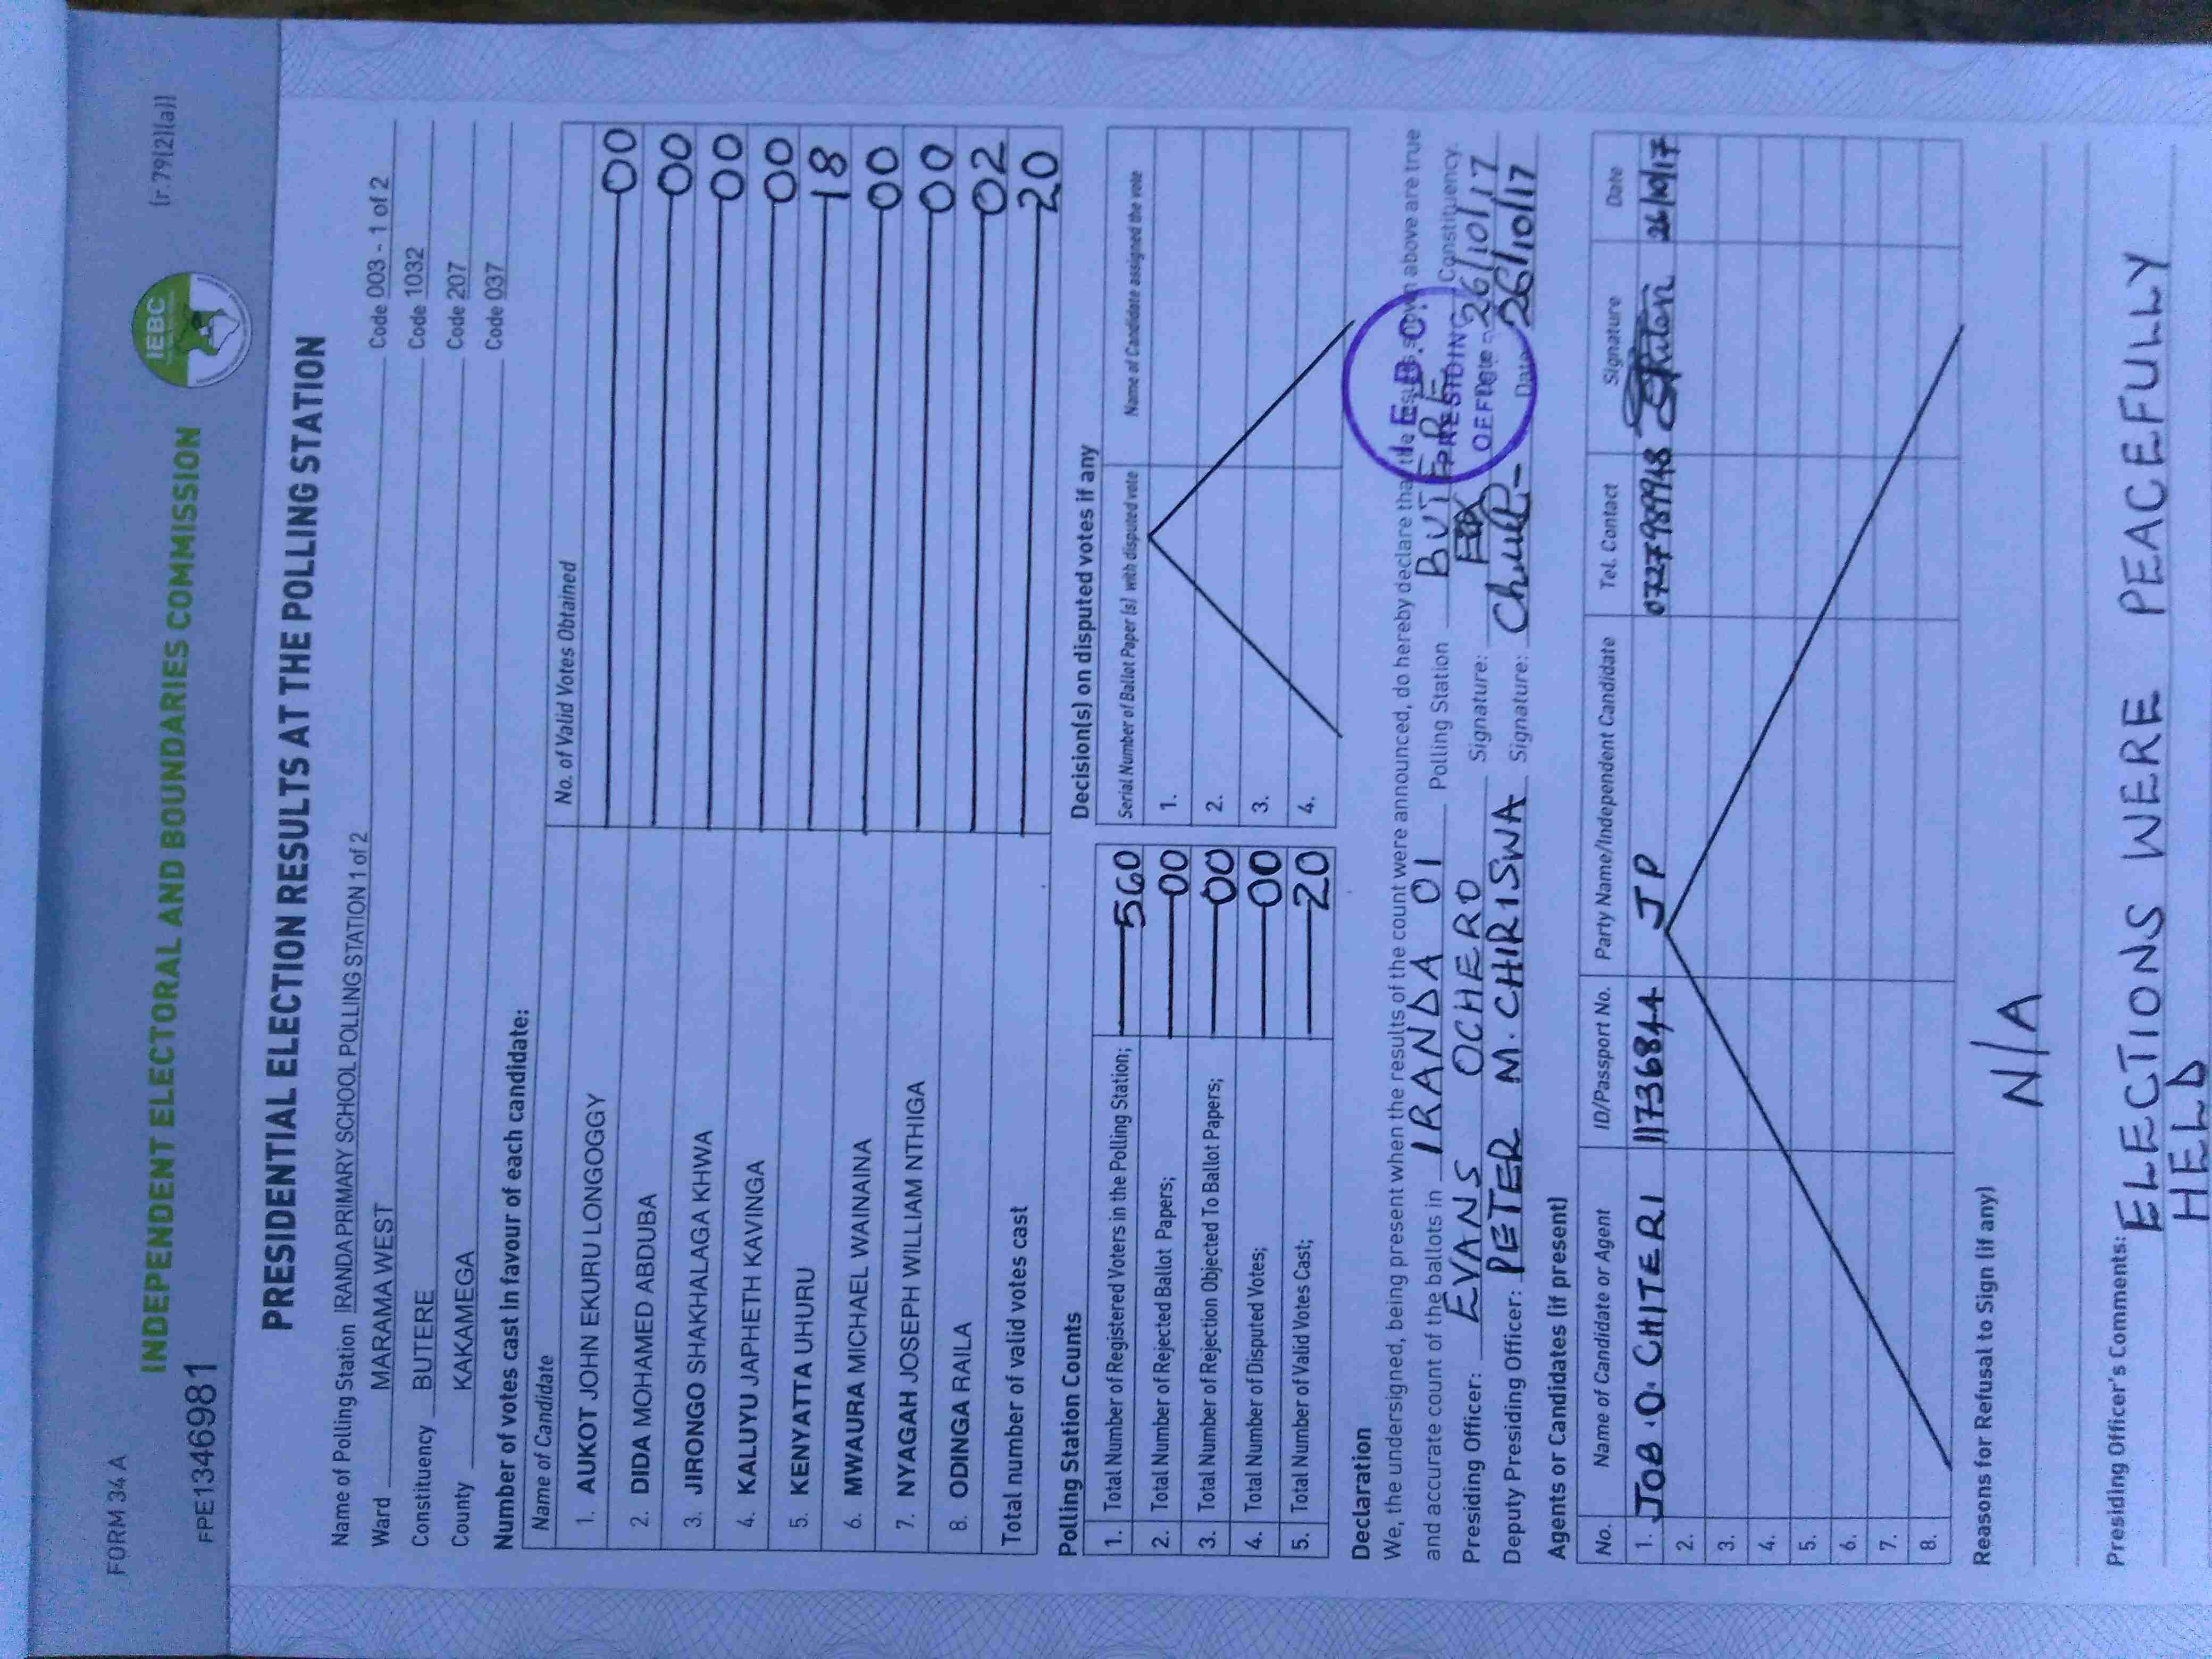 FORM 34 A
[r.79(2)(a)]
IEBC
INDEPENDENT ELECTORAL AND BOUNDARIES COMMISSION
FPE1346981
PRESIDENTIAL ELECTION RESULTS AT THE POLLING STATION
Name of Polling Station IRANDA PRIMARY SCHOOL POLLING STATION 1 of 2 Code 003 - 1 of 2
Ward MARAMA WEST Code 1032
Constituency BUTERE Code 207
County KAKAMEGA Code 037
Number of votes cast in favour of each candidate:
Name of Candidate No. of Valid Votes Obtained
1. AUKOT JOHN EKURU LONGOGGY 00
2. DIDA MOHAMED ABDUBA 00
3. JIRONGO SHAKHALAGA KHWA 00
4. KALUYU JAPHETH KAVINGA 00
5. KENYATTA UHURU 18
6. MWAURA MICHAEL WAINAINA 00
7. NYAGAH JOSEPH WILLIAM NTHIGA 00
8. ODINGA RAILA 02
Total number of valid votes cast 20
Polling Station Counts
1. Total Number of Registered Voters in the Polling Station; 560
2. Total Number of Rejected Ballot Papers; 00
3. Total Number of Rejection Objected To Ballot Papers; 00
4. Total Number of Disputed Votes; 00
5. Total Number of Valid Votes Cast; 20
Decision(s) on disputed votes if any
Serial Number of Ballot Paper (s) with disputed vote Name of Candidate assigned the vote
1.
2.
3.
4.
Declaration
We, the undersigned, being present when the results of the count were announced, do hereby declare that the results shown above are true
and accurate count of the ballots in IRANDA 01 Polling Station BUTERE Constituency.
Presiding Officer: EVANS OCHERO Signature: Date: 26/10/17
Deputy Presiding Officer: PETER M. CHIRISWA Signature: Date 26/10/17
I.E.B.C.
PRESIDING
OFFICER
Agents or Candidates (if present)
No. Name of Candidate or Agent ID/Passport No. Party Name/Independent Candidate Tel. Contact Signature Date
1. JOB .O. CHITERI 11736844 JP 0727989948 26/10/17
2.
3.
4.
5.
6.
7.
8.
Reasons for Refusal to Sign (if any)
N/A
Presiding Officer's Comments: ELECTIONS WERE PEACEFULLY
HELD